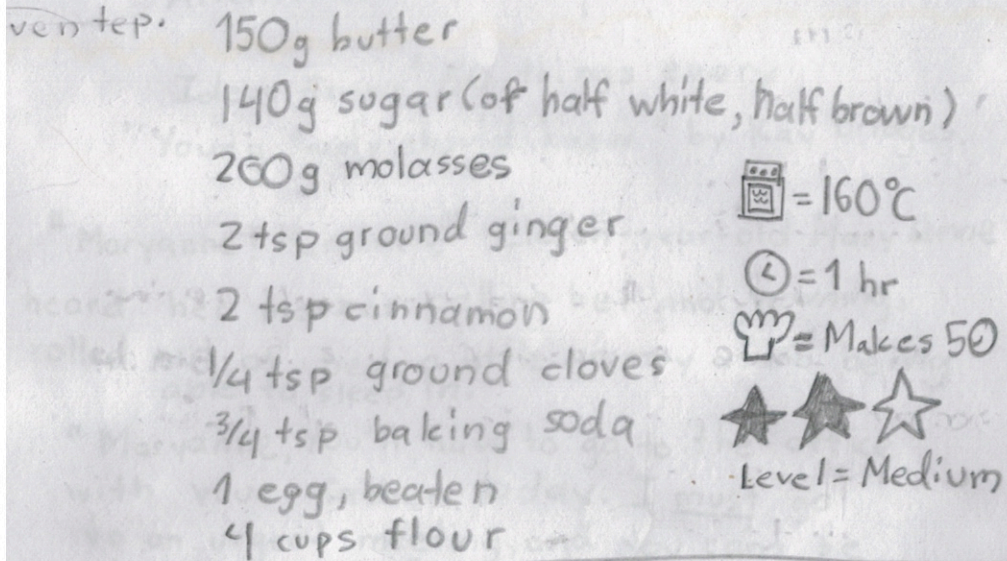 ven tep.
150g butter
140g sugar (of half white, half brown)
260g molasses
2 tsp ground ginger
2 tsp cinnamon
1/4 tsp ground cloves
3/4 tsp baking soda
1 egg, beaten
4 cups flour
= 160°C
= 1 hr
= Makes 50
Level = Medium